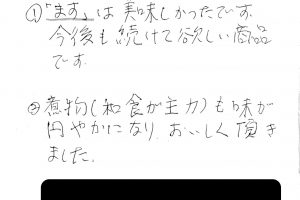 ①「ます」は美味しかったです。
今後も続けて欲しい商品
です。
②煮物(和食が主力)も味が
円やかになり、おいしく頂き
ました。